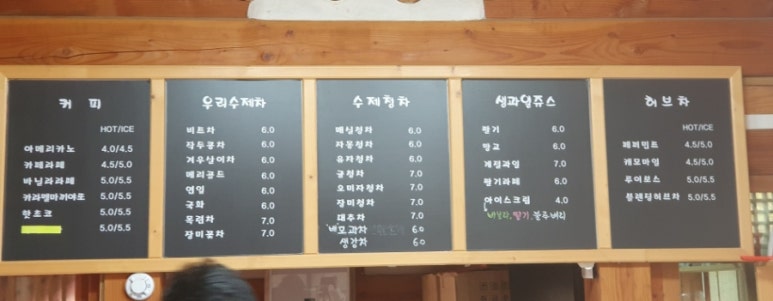 커 피
HOT/ICE
아메리카노 4.0/4.5
카페라떼 4.5/5.0
바닐라라떼 5.0/5.5
카라멜마끼아또 5.0/5.5
핫초코 5.0/5.5
5.0/5.5
우리수제차
비트차 6.0
작두콩차 6.0
겨우살이차 6.0
메리골드 6.0
연잎 6.0
국화 6.0
목련차 7.0
장미꽃차 7.0
수제청차
매실청차 6.0
자몽청차 6.0
유자청차 6.0
귤청차 7.0
오미자청차 7.0
장미청차 7.0
대추차 7.0
모과차 6.0
생강차 6.0
생과일쥬스
딸기 6.0
망고 6.0
계절과일 7.0
딸기라떼 6.0
아이스크림 4.0
바닐라, 딸기, 블루베리
허브차
HOT/ICE
페퍼민트 4.5/5.0
캐모마일 4.5/5.0
루이보스 5.0/5.5
블렌딩허브차 5.0/5.5